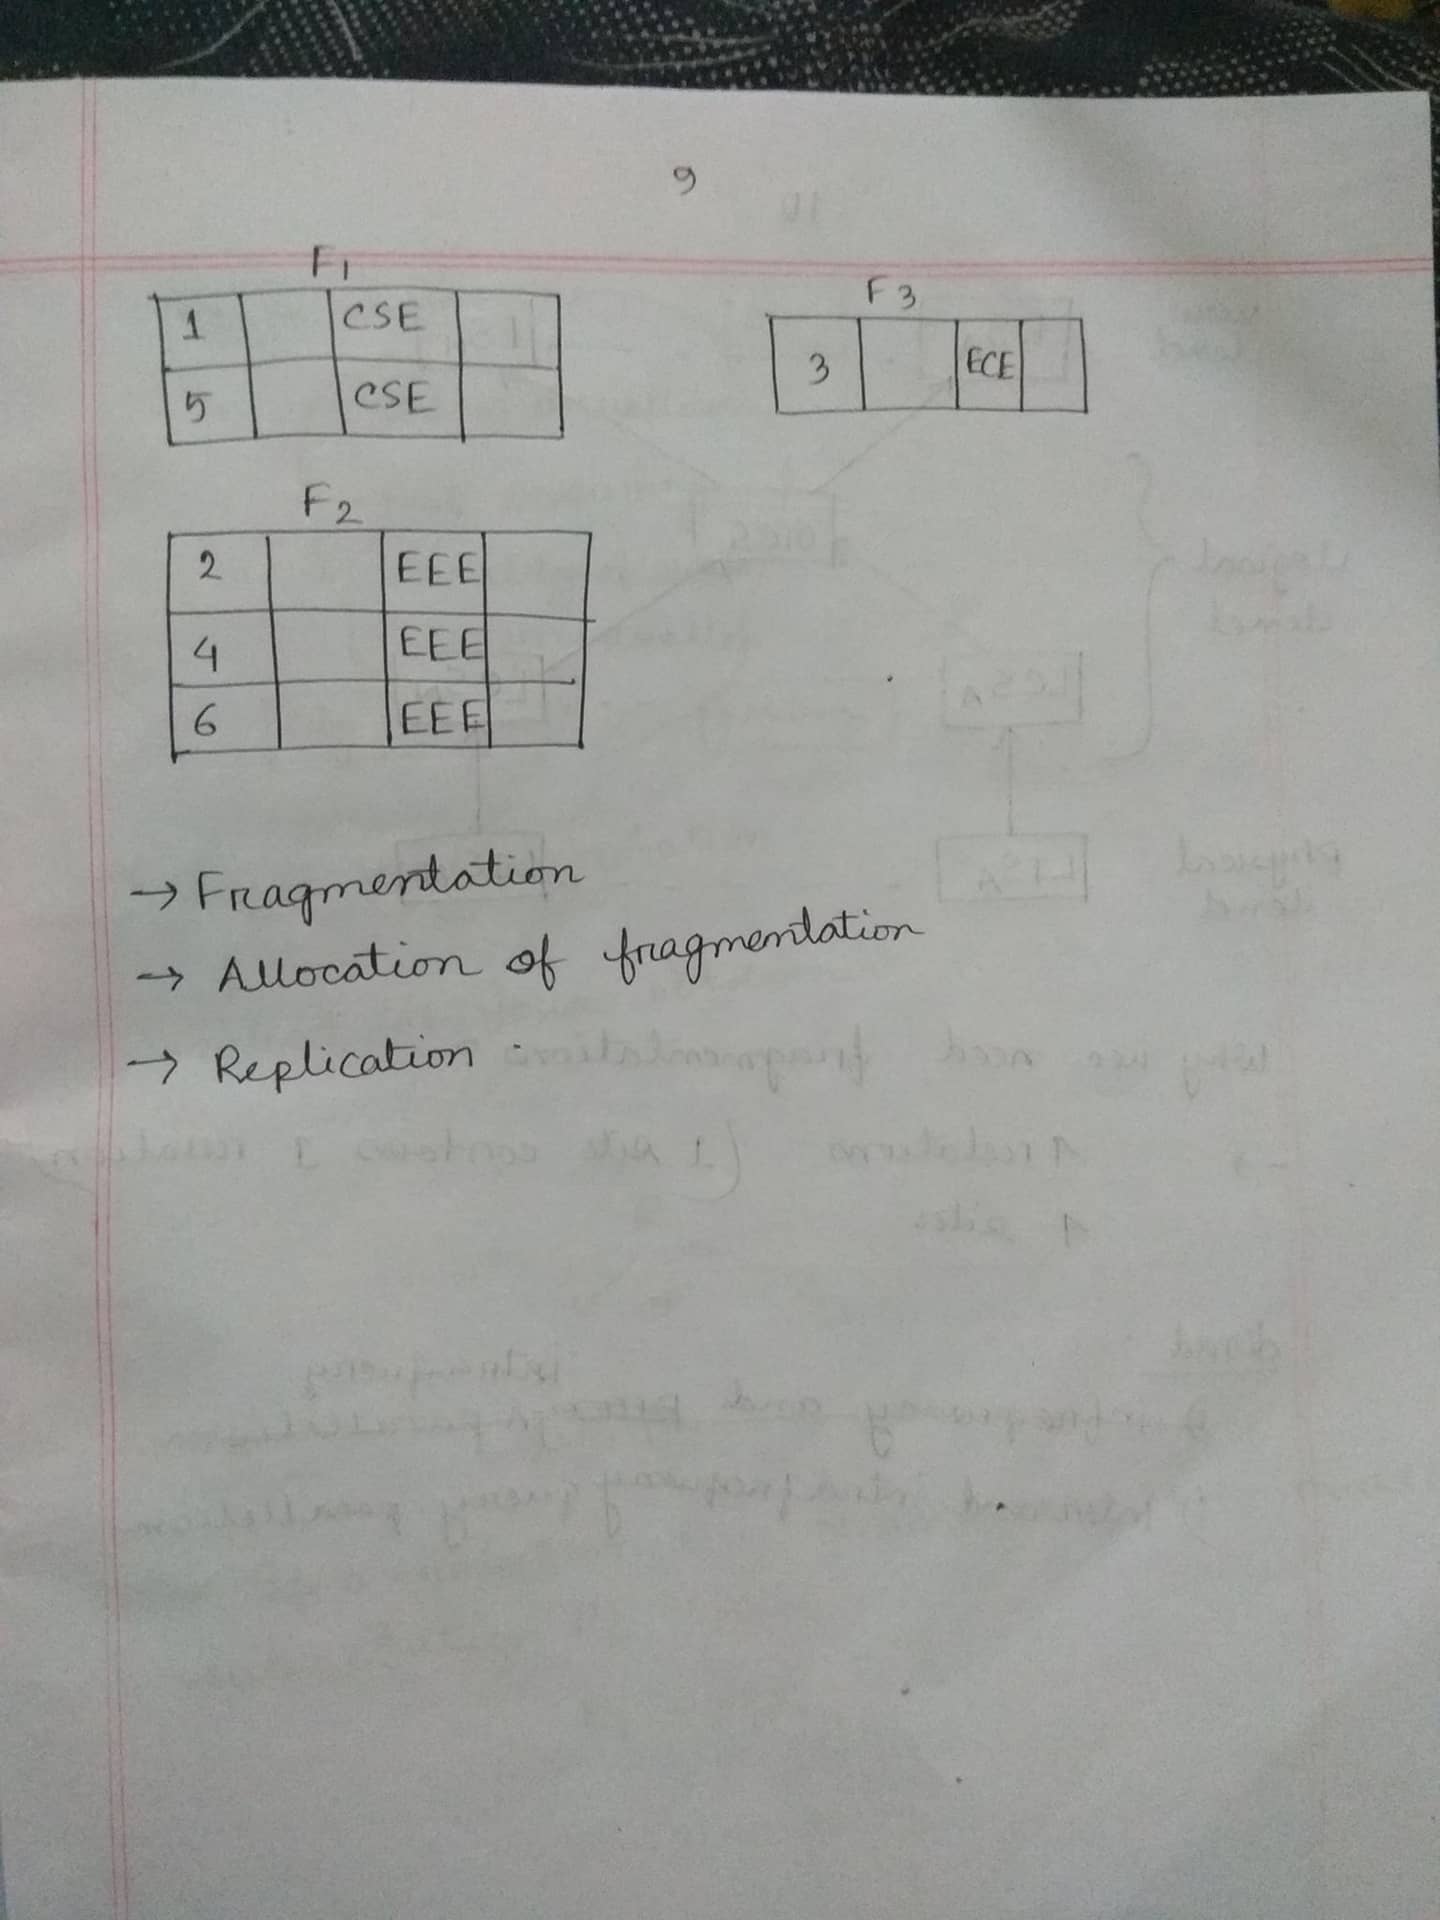 9
F1
1 CSE
5 CSE
F3
3 ECE
F2
2 EEE
4 EEE
6 EEE
→ Fragmentation
→ Allocation of fragmentation
→ Replication .